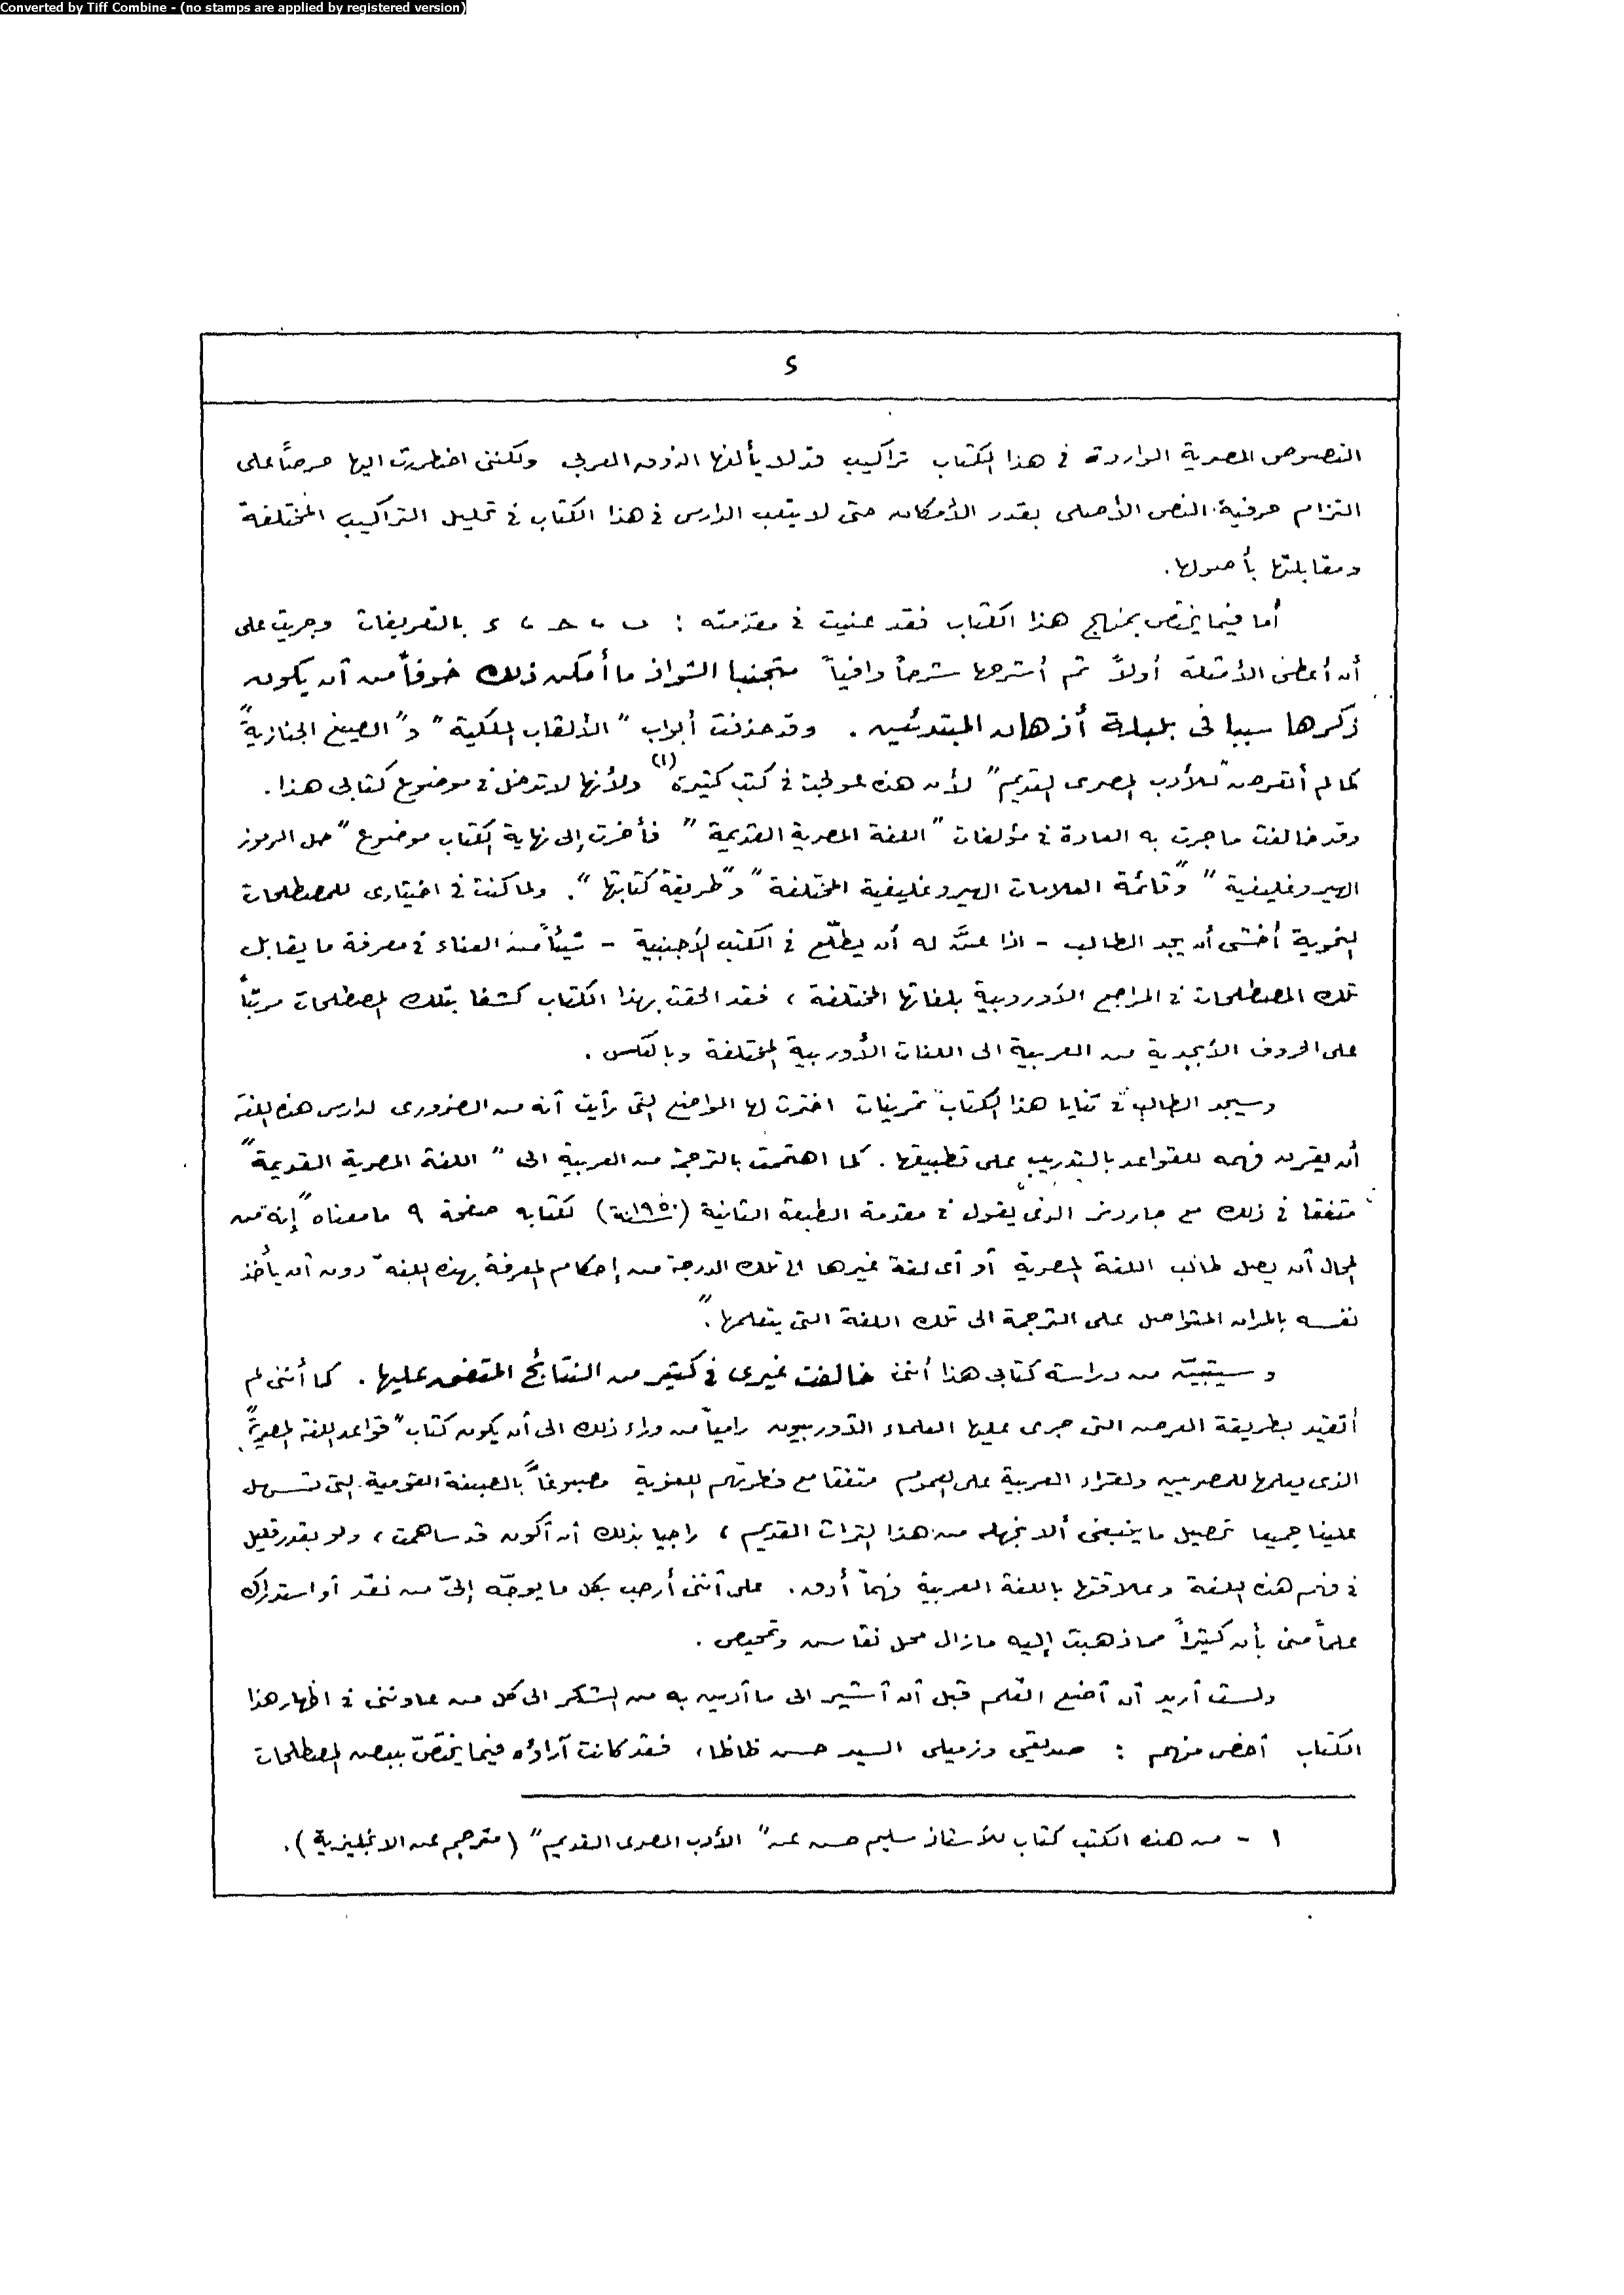 Converted by Tiff Combine - (no stamps are applied by registered version)
٤
النصوص المصرية الواردة فى هذا الكتاب تراكيب قد لا يألفها الذوق العربى ولكننى اضطررت اليها حرصًا على
التزام حرفية النص الأصلى بقدر الأمكان حتى لا يتعب الدارس فى هذا الكتاب فى تحليل التراكيب المختلفة
ومقابلتها بأصولها.
أما فيما يختص بمنهج هذا الكتاب فقد عنيت فى مقدمته : ب ، ح ، ء بالتعريفات وجريت على
أن أعطى الأمثلة أولاً ثم أشرحها شرحاً وافياً متجنبا الشواذ ما أمكن ذلك خوفاً من أن يكون
ذكرها سببا فى بلبلة أذهان المبتدئين . وقد حذفت أبواب " الألقاب الملكية " و" الصيغ الجنازية "
كما لم أتعرض "للأدب المصرى القديم" لأن هذه عولجت فى كتب كثيرة (١) ولأنها لا تدخل فى موضوع كتابى هذا .
وقد خالفت ما جرت به العادة فى مؤلفات " اللغة المصرية القديمة " فأخرت إلى نهاية الكتاب موضوع " حل الرموز
الهيروغليفية " و"قائمة العلامات الهيروغليفية المختلفة " و"طريقة كتابتها ". ولما كنت فى اختيارى للمصطلحات
النحوية أخشى أن يجد الطالب - اذا عنَّ له أن يطلّع فى الكتب الأجنبية - شيئاً من العناء فى معرفة ما يقابل
تلك المصطلحات فى المراجع الأوروبية بلغاتها المختلفة ، فقد الحقت بهذا الكتاب كشفا بتلك المصطلحات مرتباً
على الحروف الأبجدية من العربية الى اللغات الأوربية المختلفة وبالعكس .
وسيجد الطالب فى ثنايا هذا الكتاب تمرينات اخترت لها المواضع التى رأيت أنه من الضرورى لدارس هذه اللغة
أن يقرن فهمه للقواعد بالتدريب على تطبيقها . كما اهتممت بالترجمة من العربية الى " اللغة المصرية القديمة "
متفقا فى ذلك مع جاردنر الذى يقول فى مقدمة الطبعة الثانية (سنة ١٩٥٠) لكتابه صفحة ٩ ما معناه "إنه من
المحال أن يصل طالب اللغة المصرية أو أى لغة غيرها الى تلك الدرجة من إحكام المعرفة بهذه اللغة دون أن يأخذ
نفسه بالمران المتواصل على الترجمة الى تلك اللغة التى يتعلمها ."
وسيتبيّن من دراسة كتابى هذا أننى خالفت غيرى فى كثير من النتائج المتفق عليها . كما أننى لم
أتقيد بطريقة العرض التى جرى عليها العلماء الأوربيون رامياً من وراء ذلك الى أن يكون كتاب "قواعد اللغة المصرية"
الذى يعلمها للمصريين ولقراء العربية على العموم متفقا مع فطرتهم اللغوية مصبوغاً بالصبغة القومية التى تسهل
علينا جميعا تحصيل ما ينبغى ألا نجهله من هذا التراث القديم ، راجيا بذلك أن أكون قد ساهمت ، ولو بقدر قليل
فى فهم هذه اللغة وعلاقتها باللغة العربية فهماً أدق . على أننى أرحب بكل ما يوجّه إلىّ من نقد أو استدراك
علماً منى بأن كثيراً مما ذهبت إليه مازال محل نقاش وتمحيص .
ولست أريد أن أضع القلم قبل أن أشير الى ما أدين به من الشكر الى كل من عاوننى فى اظهار هذا
الكتاب أخص منهم : صديقى وزميلى السيد حسن ظاظا ، فقد كانت آراؤه فيما يختصّ ببعض المصطلحات
١ - من هذه الكتب كتاب للأستاذ سليم حسن عن " الأدب المصرى القديم " ( مترجم عن الانجليزية ) .